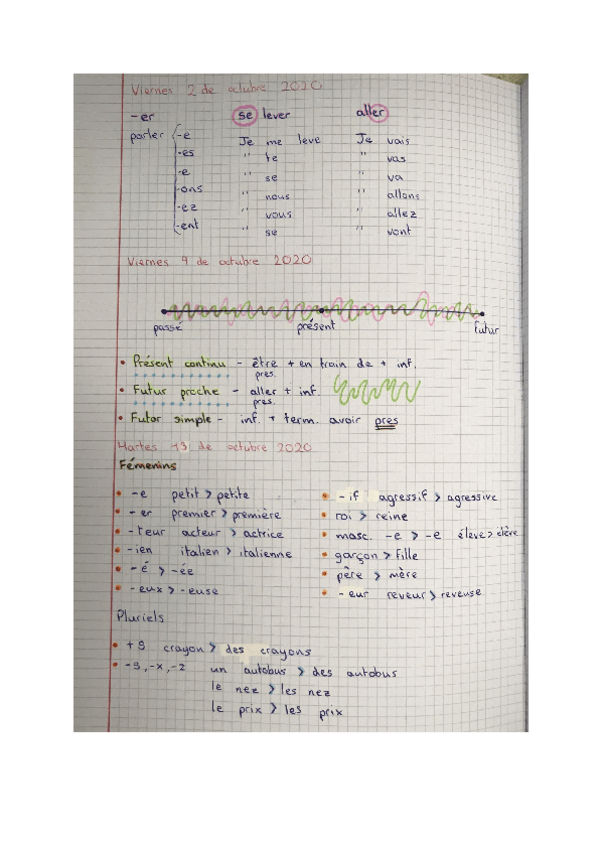 Viernes 2 de octubre 2020
-er se lever aller
parler -e Je me leve Je vais
-es " te " vas
-e " se " va
-ons " nous " allons
-ez " vous " allez
-ent " se " vont
Viernes 9 de octubre 2020
passé présent futur
• Présent continu - être + en train de + inf.
pres.
• Futur proche - aller + inf.
pres.
• Futur simple - inf. + term. avoir pres
Martes 13 de octubre 2020
Fémenins
• -e petit > petite
• -er premier > première
• -teur acteur > actrice
• -ien italien > italienne
• -é > -ée
• -eux > -euse
• -if agressif > agressive
• roi > reine
• masc. -e > -e élève > élève
• garçon > fille
• père > mère
• -eur reveur > reveuse
Pluriels
• +s crayon > des crayons
• -s, -x, -z un autobus > des autobus
le nez > les nez
le prix > les prix